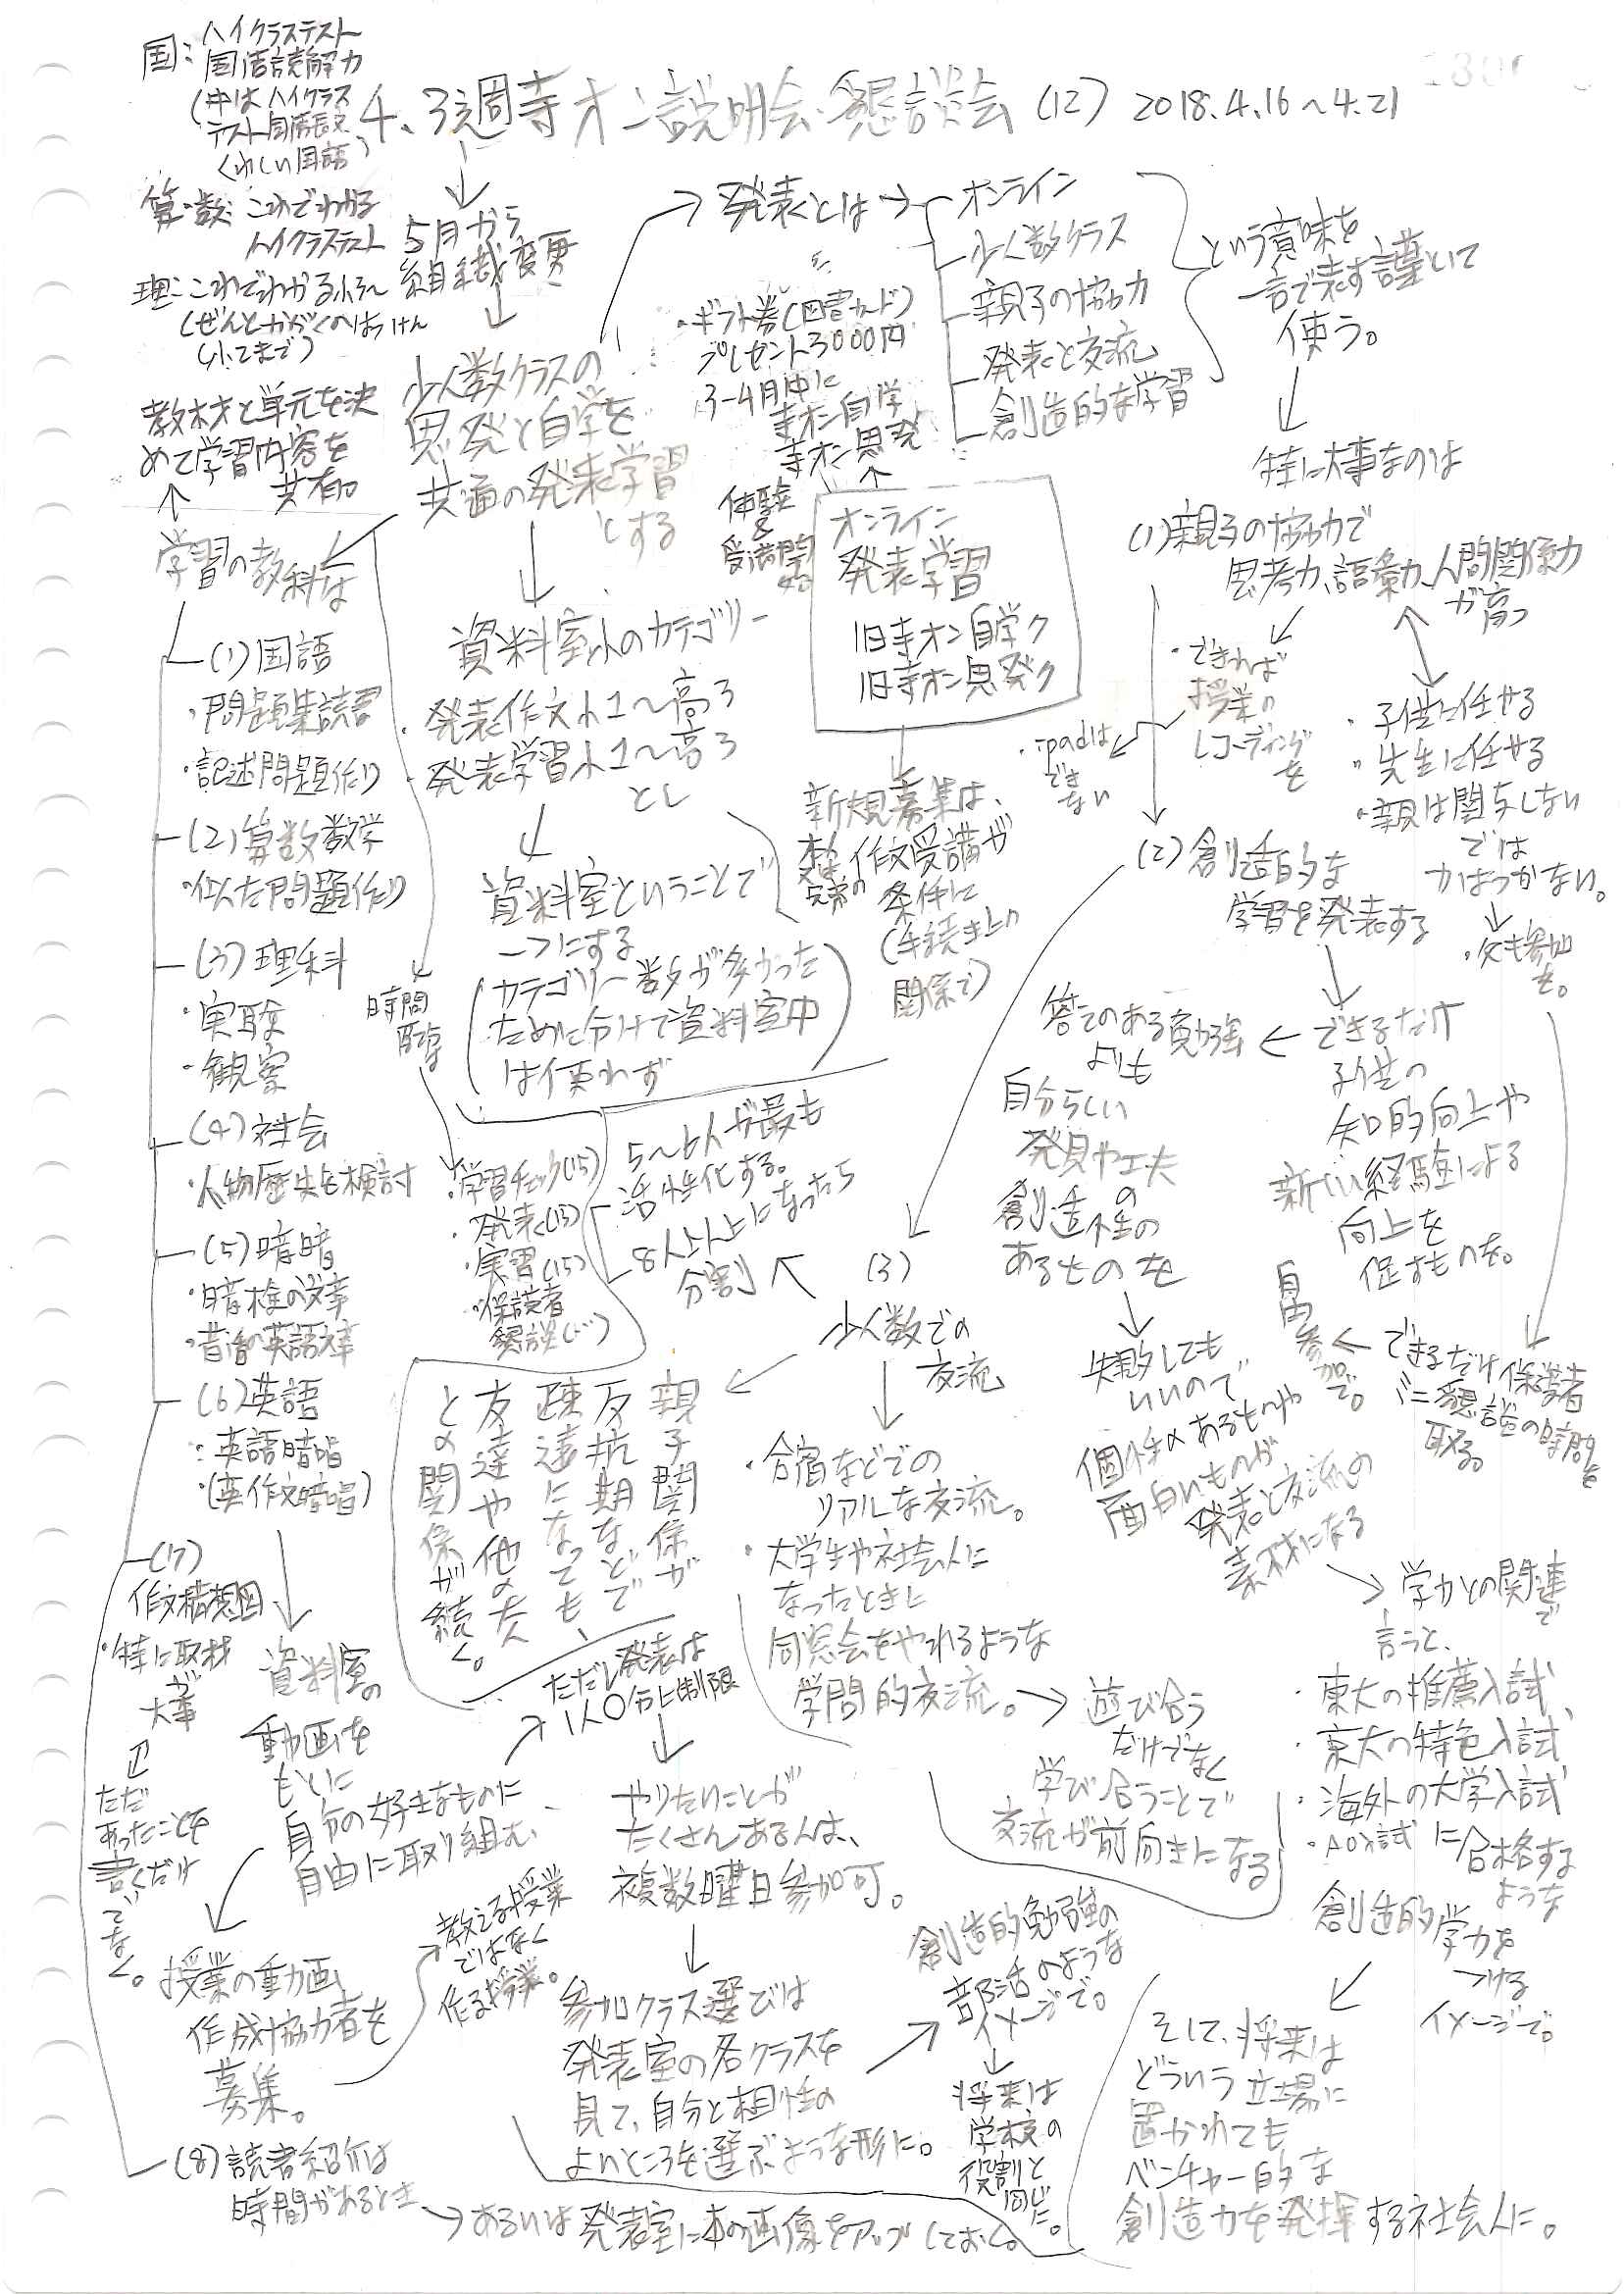 4.3週寺オン説明会・懇談会 (12) 2018.4.16〜4.21
国:ハイクラステスト
国語読解力
(中はハイクラス
テスト国語長文
くわしい国語)
算・数:これでわかる
ハイクラステスト
理:これでわかる
(小2まで)
教材と単元を決
めて学習内容を
共有。
学習の教科は
(1)国語
・問題集読書
・記述問題作り
(2)算数数学
・似た問題作り
(3)理科
・実験
・観察
(4)社会
・人物歴史を検討
(5)暗唱
・暗検の文章
・昔の英語文章
(6)英語
・英語暗唱
・(英作文暗唱)
(7)
作文構想図
・特に取材
が
大事
ただ
あったことを
書くだけ
でなく。
(8)読書紹介は
時間があるとき
あるいは発表室に本の画像をアップしておく。
5月から
組織変更
少人数クラスの
思発と自学を
共通の発表学習
とする
資料室小のカテゴリー
・発表作文小1〜高3
・発表学習小1〜高3
とし
資料室ということで
一つにする
(カテゴリー数が多かった
ために分けて資料室中
は使わず)
時間
配分は
・学習チェック(15)
・発表(15)
・実習(15)
・保護者
懇談(15)
5〜6人が最も
活性化する。
8人以上になったら
分割
資料室の
動画を
もとに
自分の好きなものに
自由に取り組む、
授業の動画
作成協力者を
募集。
教える授業
ではなく
作る授業。
発表とは
オンライン
少人数クラス
親子の協力
発表と交流
創造的な学習
という意味を
一言で表す言葉として
使う。
・ギフト券(図書カード)
プレゼント3000円
3-4月中に
寺オン自学
寺オン思発
体験
&
受講開始
オンライン
発表学習
旧寺オン自学ク
旧寺オン思発ク
新規募集は、
本人又は兄弟の作文受講が
条件に
(手続き上の
関係で)
特に大事なのは
(1)親子の協力で
思考力、語彙力、人間関係力
が育つ
・できれば
授業の
レコーディング
を
・ipadは
できない
・子供に任せる
・先生に任せる
・親は関与しない
では
力はつかない。
・父も参加
を。
できるだけ保護者
ミニ懇談の時間を
取る。
自由参加で。
(2)創造的な
学習を発表する
できるだけ
子供の
知的向上や
新しい経験による
向上を
促すものを。
答えのある勉強
よりも
自分らしい
発見や工夫
の
創造性の
あるものを
失敗しても
いいので
個性のあるものや
面白いものが
発表と交流の
素材になる
学力との関連で
言うと、
・東大の推薦入試
・京大の特色入試
・海外の大学入試
・AO入試に合格する
ような
創造的学力を
つける
イメージで。
そして、将来は
どういう立場に
置かれても
ベンチャー的な
創造力を発揮する社会人に。
(3)
少人数での
交流
親子関係が
反抗期などで
疎遠になっても、
友達や他の大人
との関係が続く。
・合宿などでの
リアルな交流。
・大学生や社会人に
なったときに
同窓会をやれるような
学問的交流。
遊び合う
だけでなく
学び合うことで
交流が前向きになる
ただし発表は
1人〇分に制限
やりたいことが
たくさんある人は、
複数曜日参加可。
参加クラス選びは
発表室の各クラスを
見て、自分と相性の
よいところを選ぶような形に。
創造的勉強の
部活のような
イメージで。
将来は
学校の
役割と
同じに。